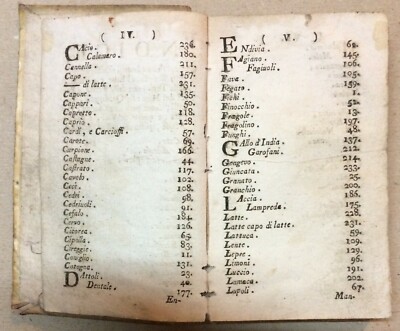 ( IV. )
CAcio. 238.
Calamaro. 180.
Cannella. 211.
Capo. 157.
—— di latte. 231.
Capone. 135.
Cappari. 50.
Capretto. 118.
Caprio. 128.
Cardi, e Carcioffi. 57.
Carote. 69.
Carpione. 166.
Castagne. 44.
Castrato. 117.
Cavoli. 102.
Ceci. 108.
Cedri. 58.
Cedriuoli. 91.
Cefalo. 184.
Cervo. 126.
Cicorea. 65.
Cipolla. 83.
Ciregie. 11.
Coniglio. 131.
Cotogna. 23.
DAttoli. 42.
Dentale. 177.
En-
( V. )
ENdivia. 62.
FAgiano. 145.
Fagiuoli. 106.
Fava. 105.
Fegato. 159.
Fichi. 1.
Finocchio. 52.
Fragole. 13.
Fragolino. 197.
Funghi. 48.
GAllo d'India. 137.
Garofani. 212.
Gengevo. 214.
Giuncata. 233.
Granato. 25.
Granchio. 200.
LAccia. 186.
Lampreda. 175.
Latte. 228.
Latte capo di latte. 231.
Lattuca. 54.
Lente. 109.
Lepre. 129.
Limoni. 96.
Luccio. 191.
Lumaca. 202.
Lupoli. 67.
Man-